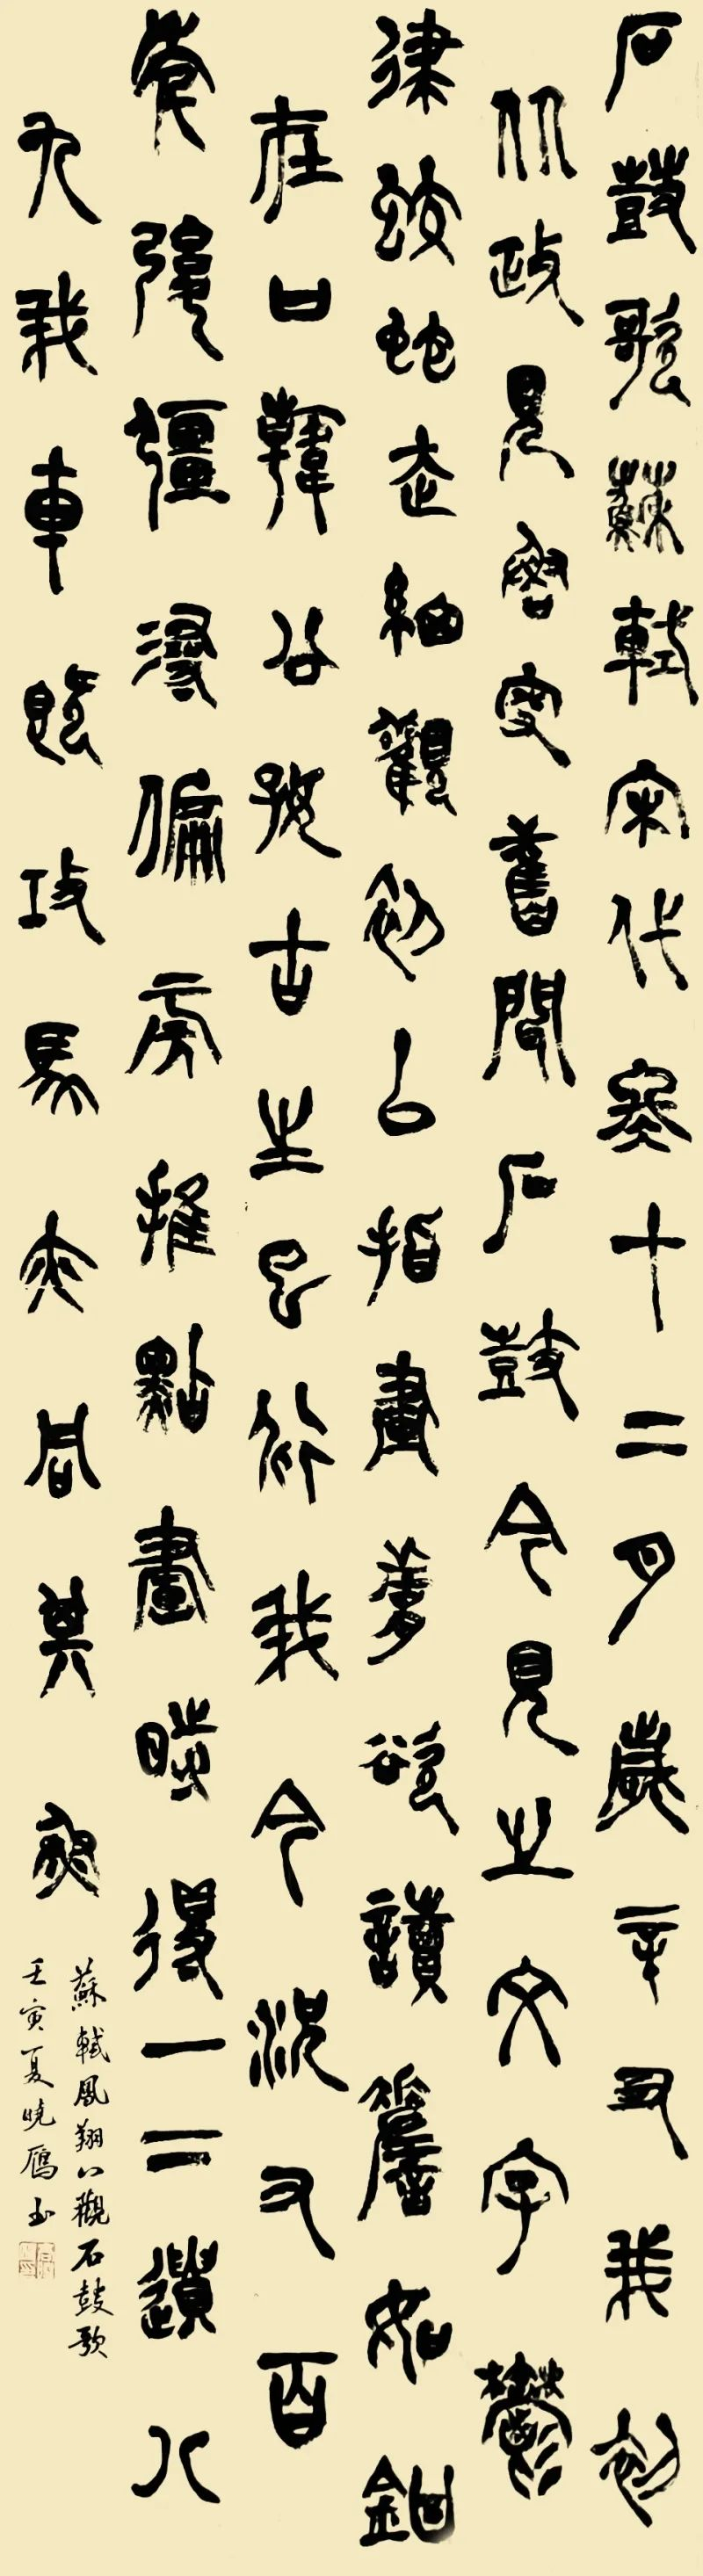 石鼓歌蘇軾宋代冬十二月歲辛丑我初
从政見魯叟舊聞石鼓今見之文字鬱
律蛟蛇走細觀初以指畫欲讀如鉗
在口韓公好古生已遲我今況又百
年後彊尋偏旁推點畫時得一二遺八
九我車既攻馬亦同其魚
蘇軾鳳翔八觀石鼓歌
壬寅夏曉雁書